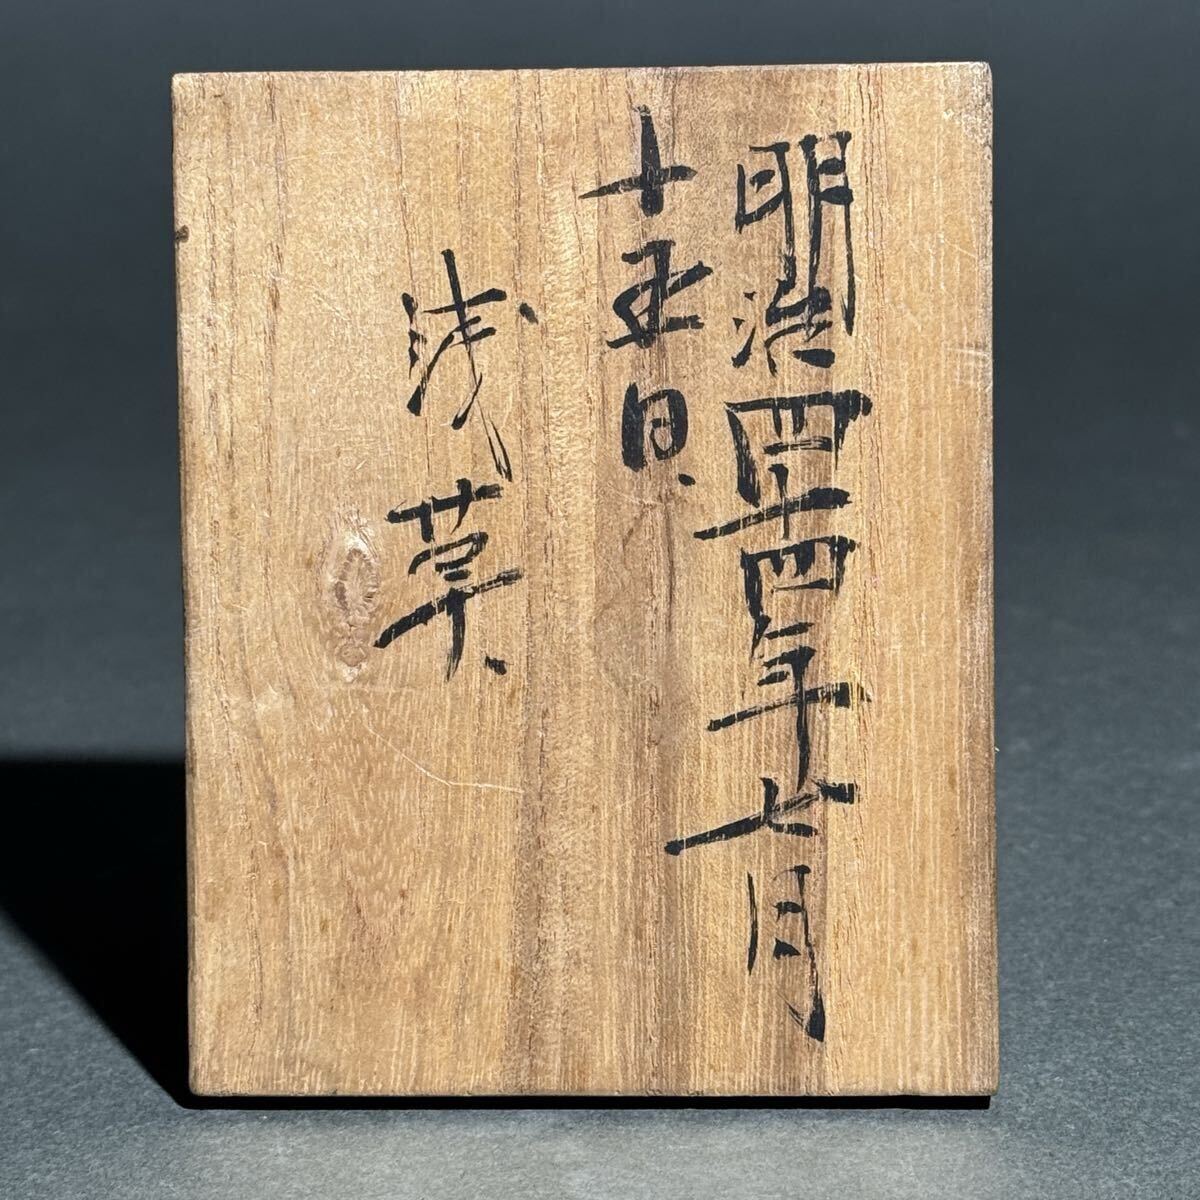 明治四十四年七月
十五日、
浅草、